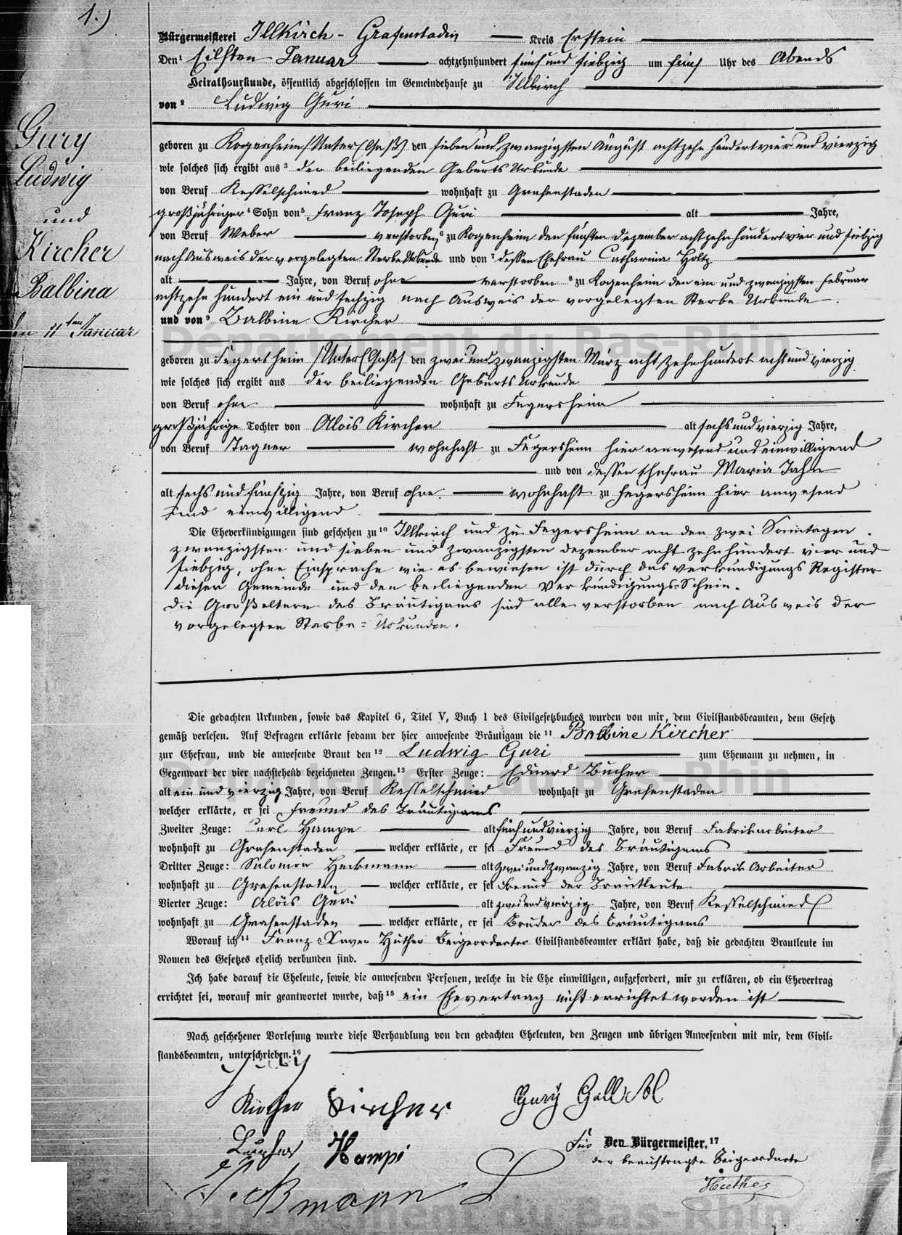 1.)
Gury
Ludwig
und
Kircher
Balbina
den 11ten Januar
Bürgermeisterei Illkirch-Grafenstaden Kreis Erstein
Den¹ eilften Januar achtzehnhundert fünf und siebzig um fünf Uhr des Abends
Heirathsurkunde, öffentlich abgeschlossen im Gemeindehause zu Illkirch
von² Ludwig Guri
geboren zu Kogenheim (Unter Elsaß) den sieben und zwanzigsten August achtzehn hundert vier und vierzig
wie solches sich ergibt aus³ der beiliegenden Geburts Urkunde
von Beruf Kesselschmied wohnhaft zu Grafenstaden
großjähriger⁴ Sohn von⁵ Franz Joseph Guri alt Jahre,
von Beruf Weber verstorben⁶ zu Kogenheim den fünften Dezember achtzehn hundert vier und siebzig
nach Ausweis der vorgelegten Sterbe Urkunde und von⁷ dessen Ehefrau Catharina Holtz
alt Jahre, von Beruf ohne verstorben⁸ zu Kogenheim den ein und zwanzigsten Februar
achtzehn hundert ein und sechzig nach Ausweis der vorgelegten Sterbe Urkunde
und von⁹ Balbine Kircher
Département du Bas-Rhin
geboren zu Fegersheim (Unter Elsaß) den zwei und zwanzigsten März acht zehn hundert acht und vierzig
wie solches sich ergibt aus der beiliegenden Geburts Urkunde
von Beruf ohne wohnhaft zu Fegersheim
großjährige Tochter von Alois Kircher alt sechs und vierzig Jahre,
von Beruf Tagner wohnhaft zu Fegersheim hier anwesend und einwilligend
und von dessen Ehefrau Maria Jahn
alt sechs und fünfzig Jahre, von Beruf ohne wohnhaft zu Fegersheim hier anwesend
und einwilligend
Die Eheverkündigungen sind geschehen zu¹⁰ Illkirch und zu Fegersheim an den zwei Sonntagen
zwanzigsten und sieben und zwanzigsten Dezember acht zehn hundert vier und
siebzig, ohne Einsprache wie es bewiesen ist durch das Verkündigungs Register
dieser Gemeinde und den beiliegenden Verkündigungs Schein.
Die Großeltern des Bräutigams sind alle verstorben nach Ausweis der
vorgelegten Sterbe-Urkunden.
Die gedachten Urkunden, sowie das Kapitel 6, Titel V, Buch 1 des Civilgesetzbuches wurden von mir, dem Civilstandsbeamten, dem Gesetz
gemäß verlesen. Auf Befragen erklärte sodann der hier anwesende Bräutigam die¹¹ Balbine Kircher
zur Ehefrau, und die anwesende Braut den¹² Ludwig Guri zum Ehemann zu nehmen, in
Gegenwart der vier nachstehend bezeichneten Zeugen.¹³ Erster Zeuge: Eduard Bucher
Département du Bas-Rhin
alt ein und vierzig Jahre, von Beruf Kesselschmied wohnhaft zu Grafenstaden
welcher erklärte, er sei Freund des Bräutigams
Zweiter Zeuge: Carl Hampe alt fünf und vierzig Jahre, von Beruf Fabrikarbeiter
wohnhaft zu Grafenstaden welcher erklärte, er sei Freund des Bräutigams
Dritter Zeuge: Salomon Heckmann alt zwei und zwanzig Jahre, von Beruf Fabrik Arbeiter
wohnhaft zu Grafenstaden welcher erklärte, er sei Freund der Brautleute
Vierter Zeuge: Alois Guri alt zwei und vierzig Jahre, von Beruf Kesselschmied
wohnhaft zu Grafenstaden welcher erklärte, er sei Bruder des Bräutigams
Worauf ich¹⁴ Franz Xaver Huther Beigeordneter Civilstandsbeamter erklärt habe, daß die gedachten Brautleute im
Namen des Gesetzes ehelich verbunden sind.
Ich habe darauf die Eheleute, sowie die anwesenden Personen, welche in die Ehe einwilligen, aufgefordert, mir zu erklären, ob ein Ehevertrag
errichtet sei, worauf mir geantwortet wurde, daß¹⁵ ein Ehevertrag nicht errichtet worden ist
Nach geschehener Vorlesung wurde diese Verhandlung von den gedachten Eheleuten, den Zeugen und übrigen Anwesenden mit mir, dem Civil-
standsbeamten, unterschrieben.¹⁶
Gury
Kircher Kircher Gury
Bucher Hampe
Für Den Bürgermeister.¹⁷
der beauftragte Beigeordnete
Heckmann
Huther
Département du Bas-Rhin